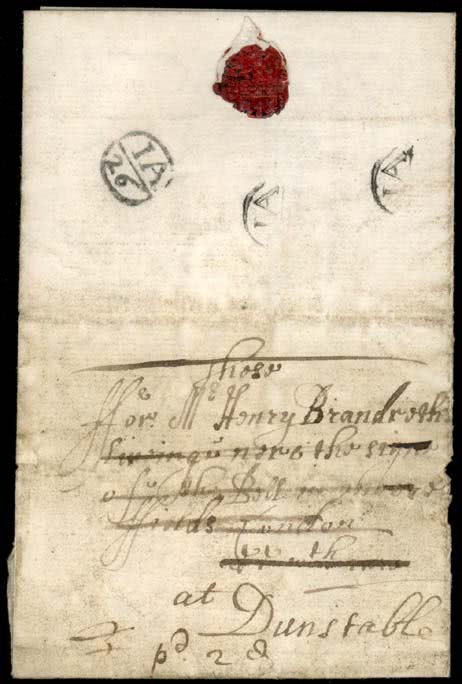 IA
26
IA
IA
These
ffor Mr Henry Brandreth
liveinge nere the signe
of the Bell in
ffields London
with
at
Dunstable
pd 2d